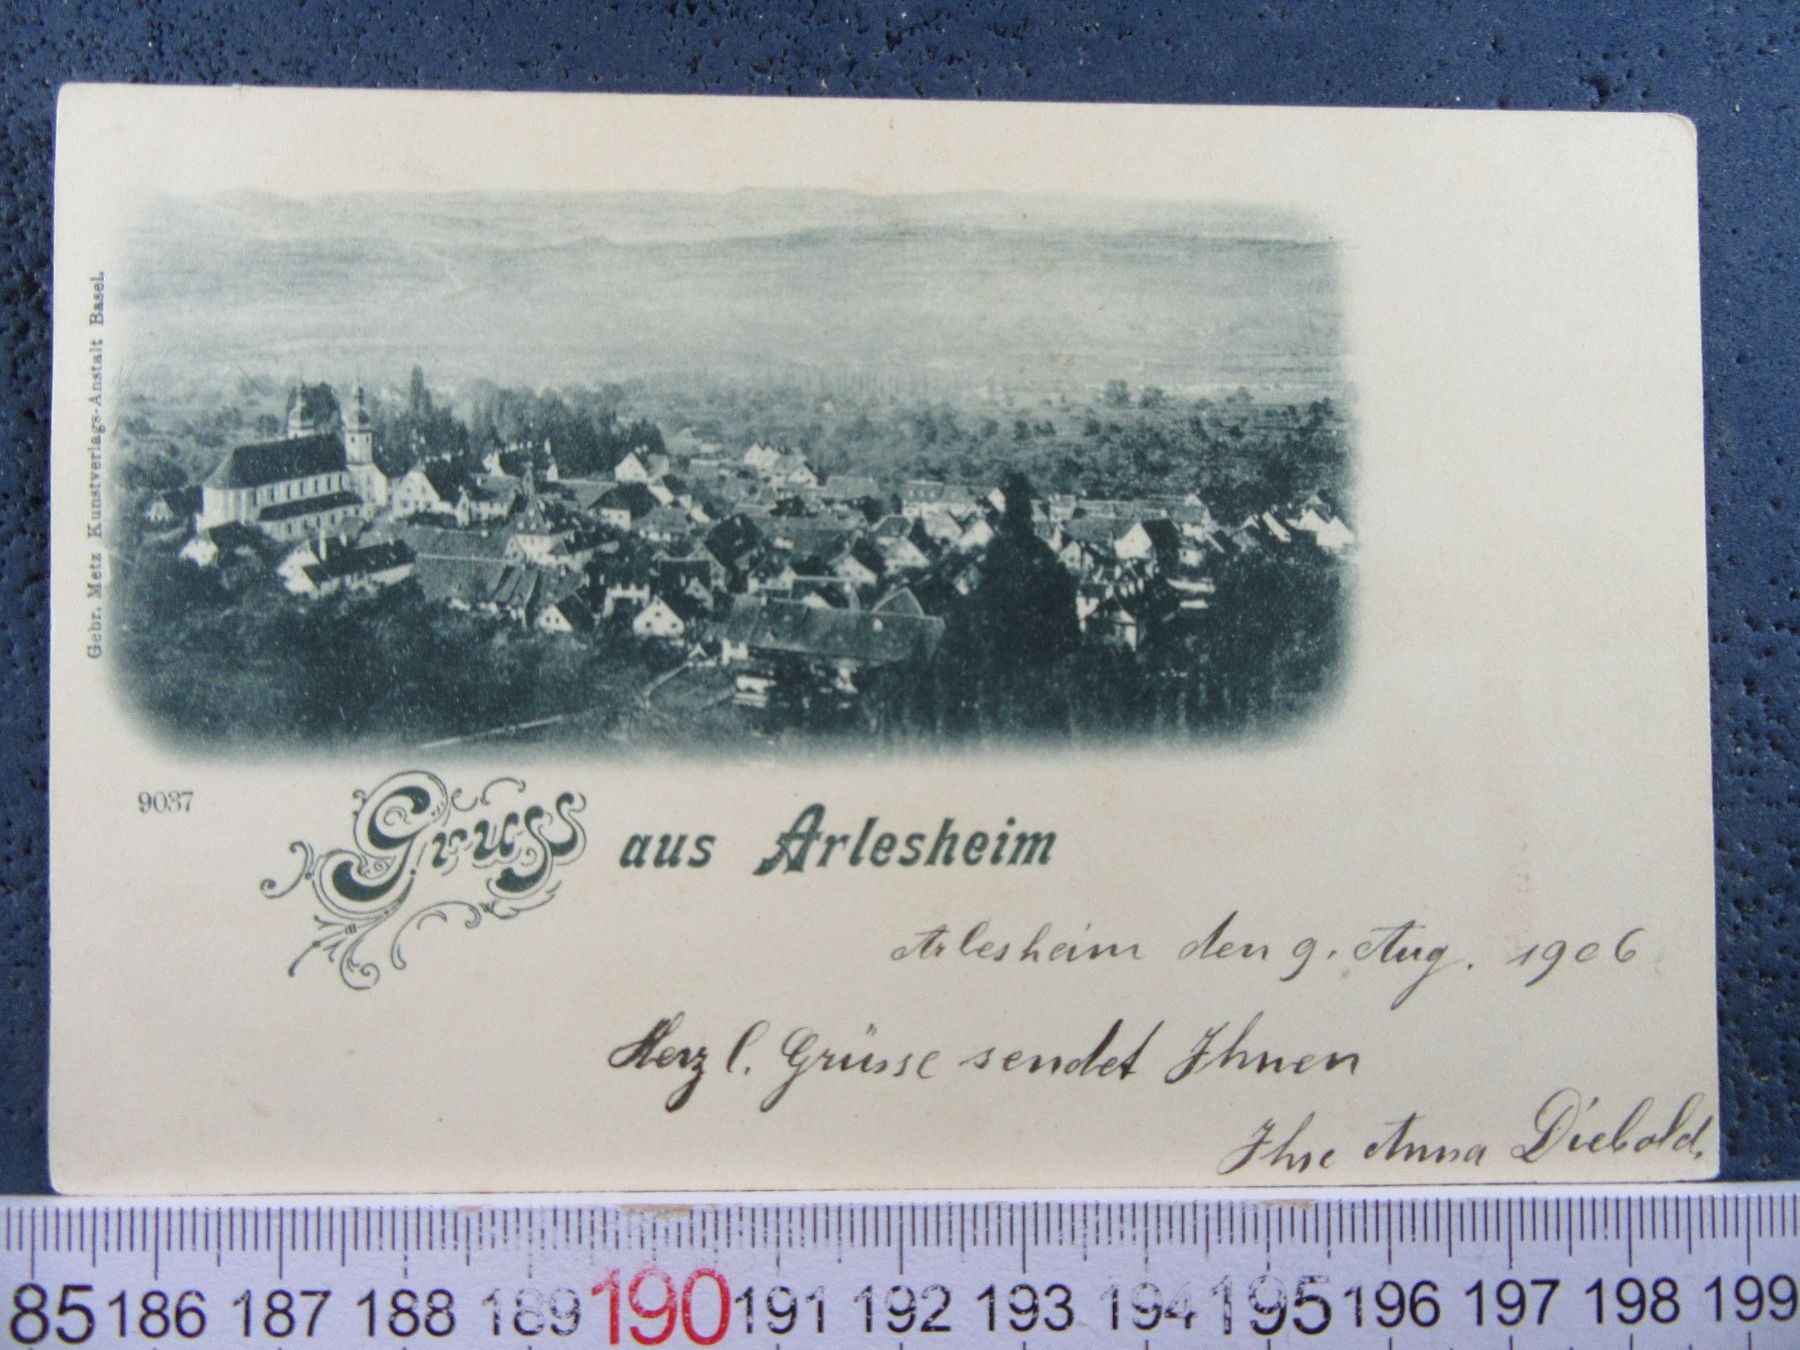 Gebr. Metz Kunstverlags-Anstalt Basel.
9037
Gruss aus Arlesheim
Arlesheim den 9. Aug. 1906
Herzl. Grüsse sendet Ihnen
Ihre Anna Diebold.
85 186 187 188 189 190 191 192 193 194 195 196 197 198 199